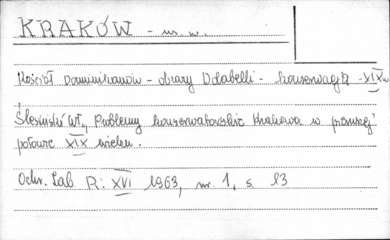 KRAKÓW - m. w.
Kościół Dominikanów - obrazy Dolabelli - konserwacja - XIX w
Ślesiński Wł., Problemy konserwatorskie Krakowa w pierwszej
połowie XIX wieku.
Ochr. Zab R: XVI 1963, nr 1, s. 13